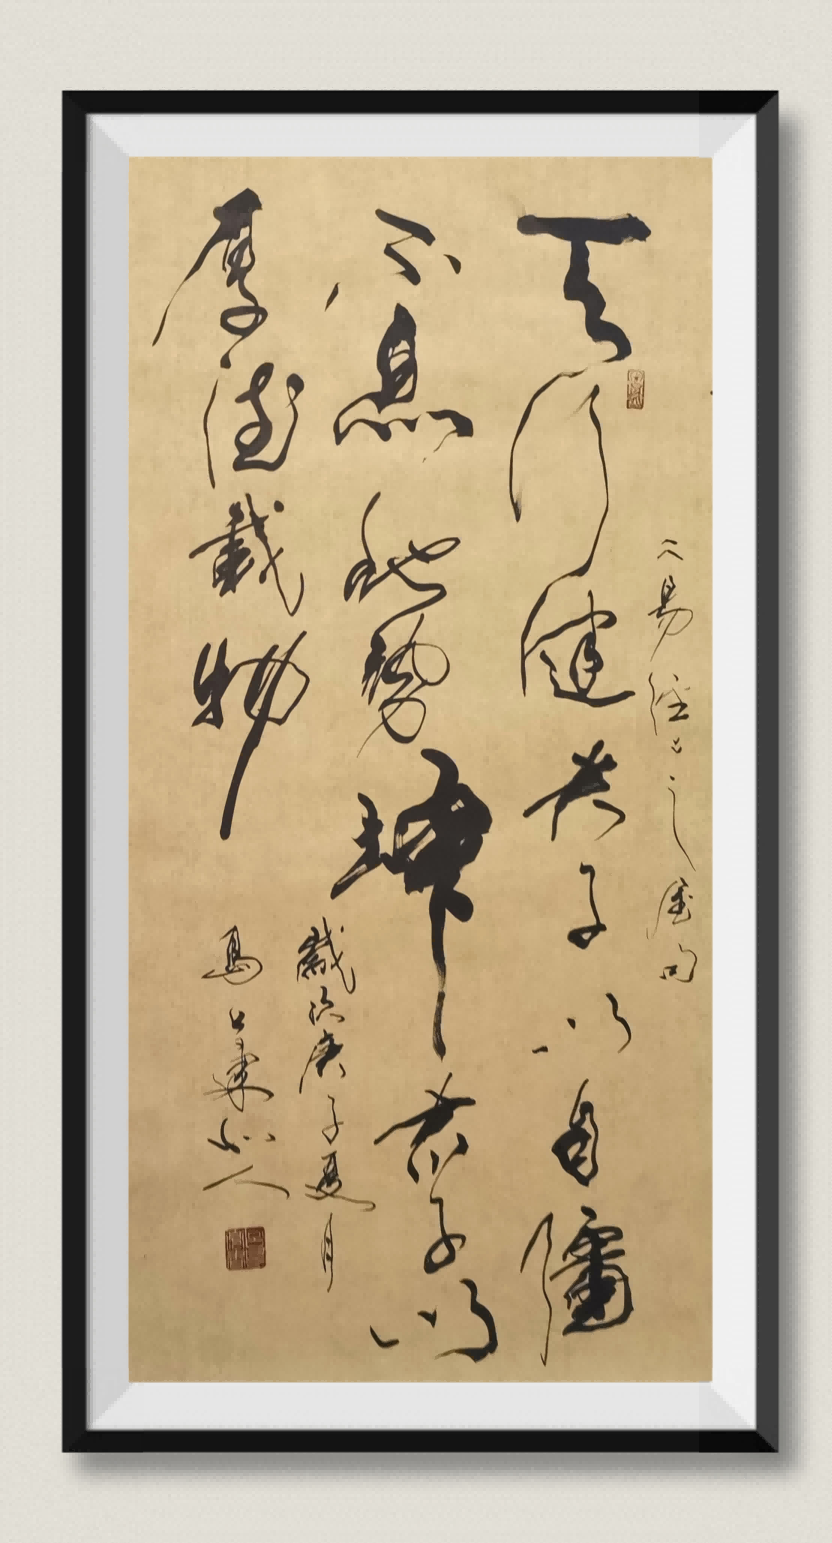 易經之句
天行健君子以自彊
不息地勢坤君子以
厚德載物
歲次庚子夏月